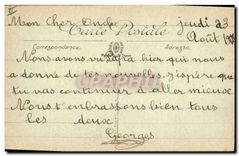 Mon Cher Oncle jeudi 23
Carte Postale Août
Correspondance Adresse
Nous avons vu hier qui nous
a donné de tes nouvelles. J'espère que
tu vas continuer à aller mieux
Nous t'embrassons bien tous
les deux.
Georges